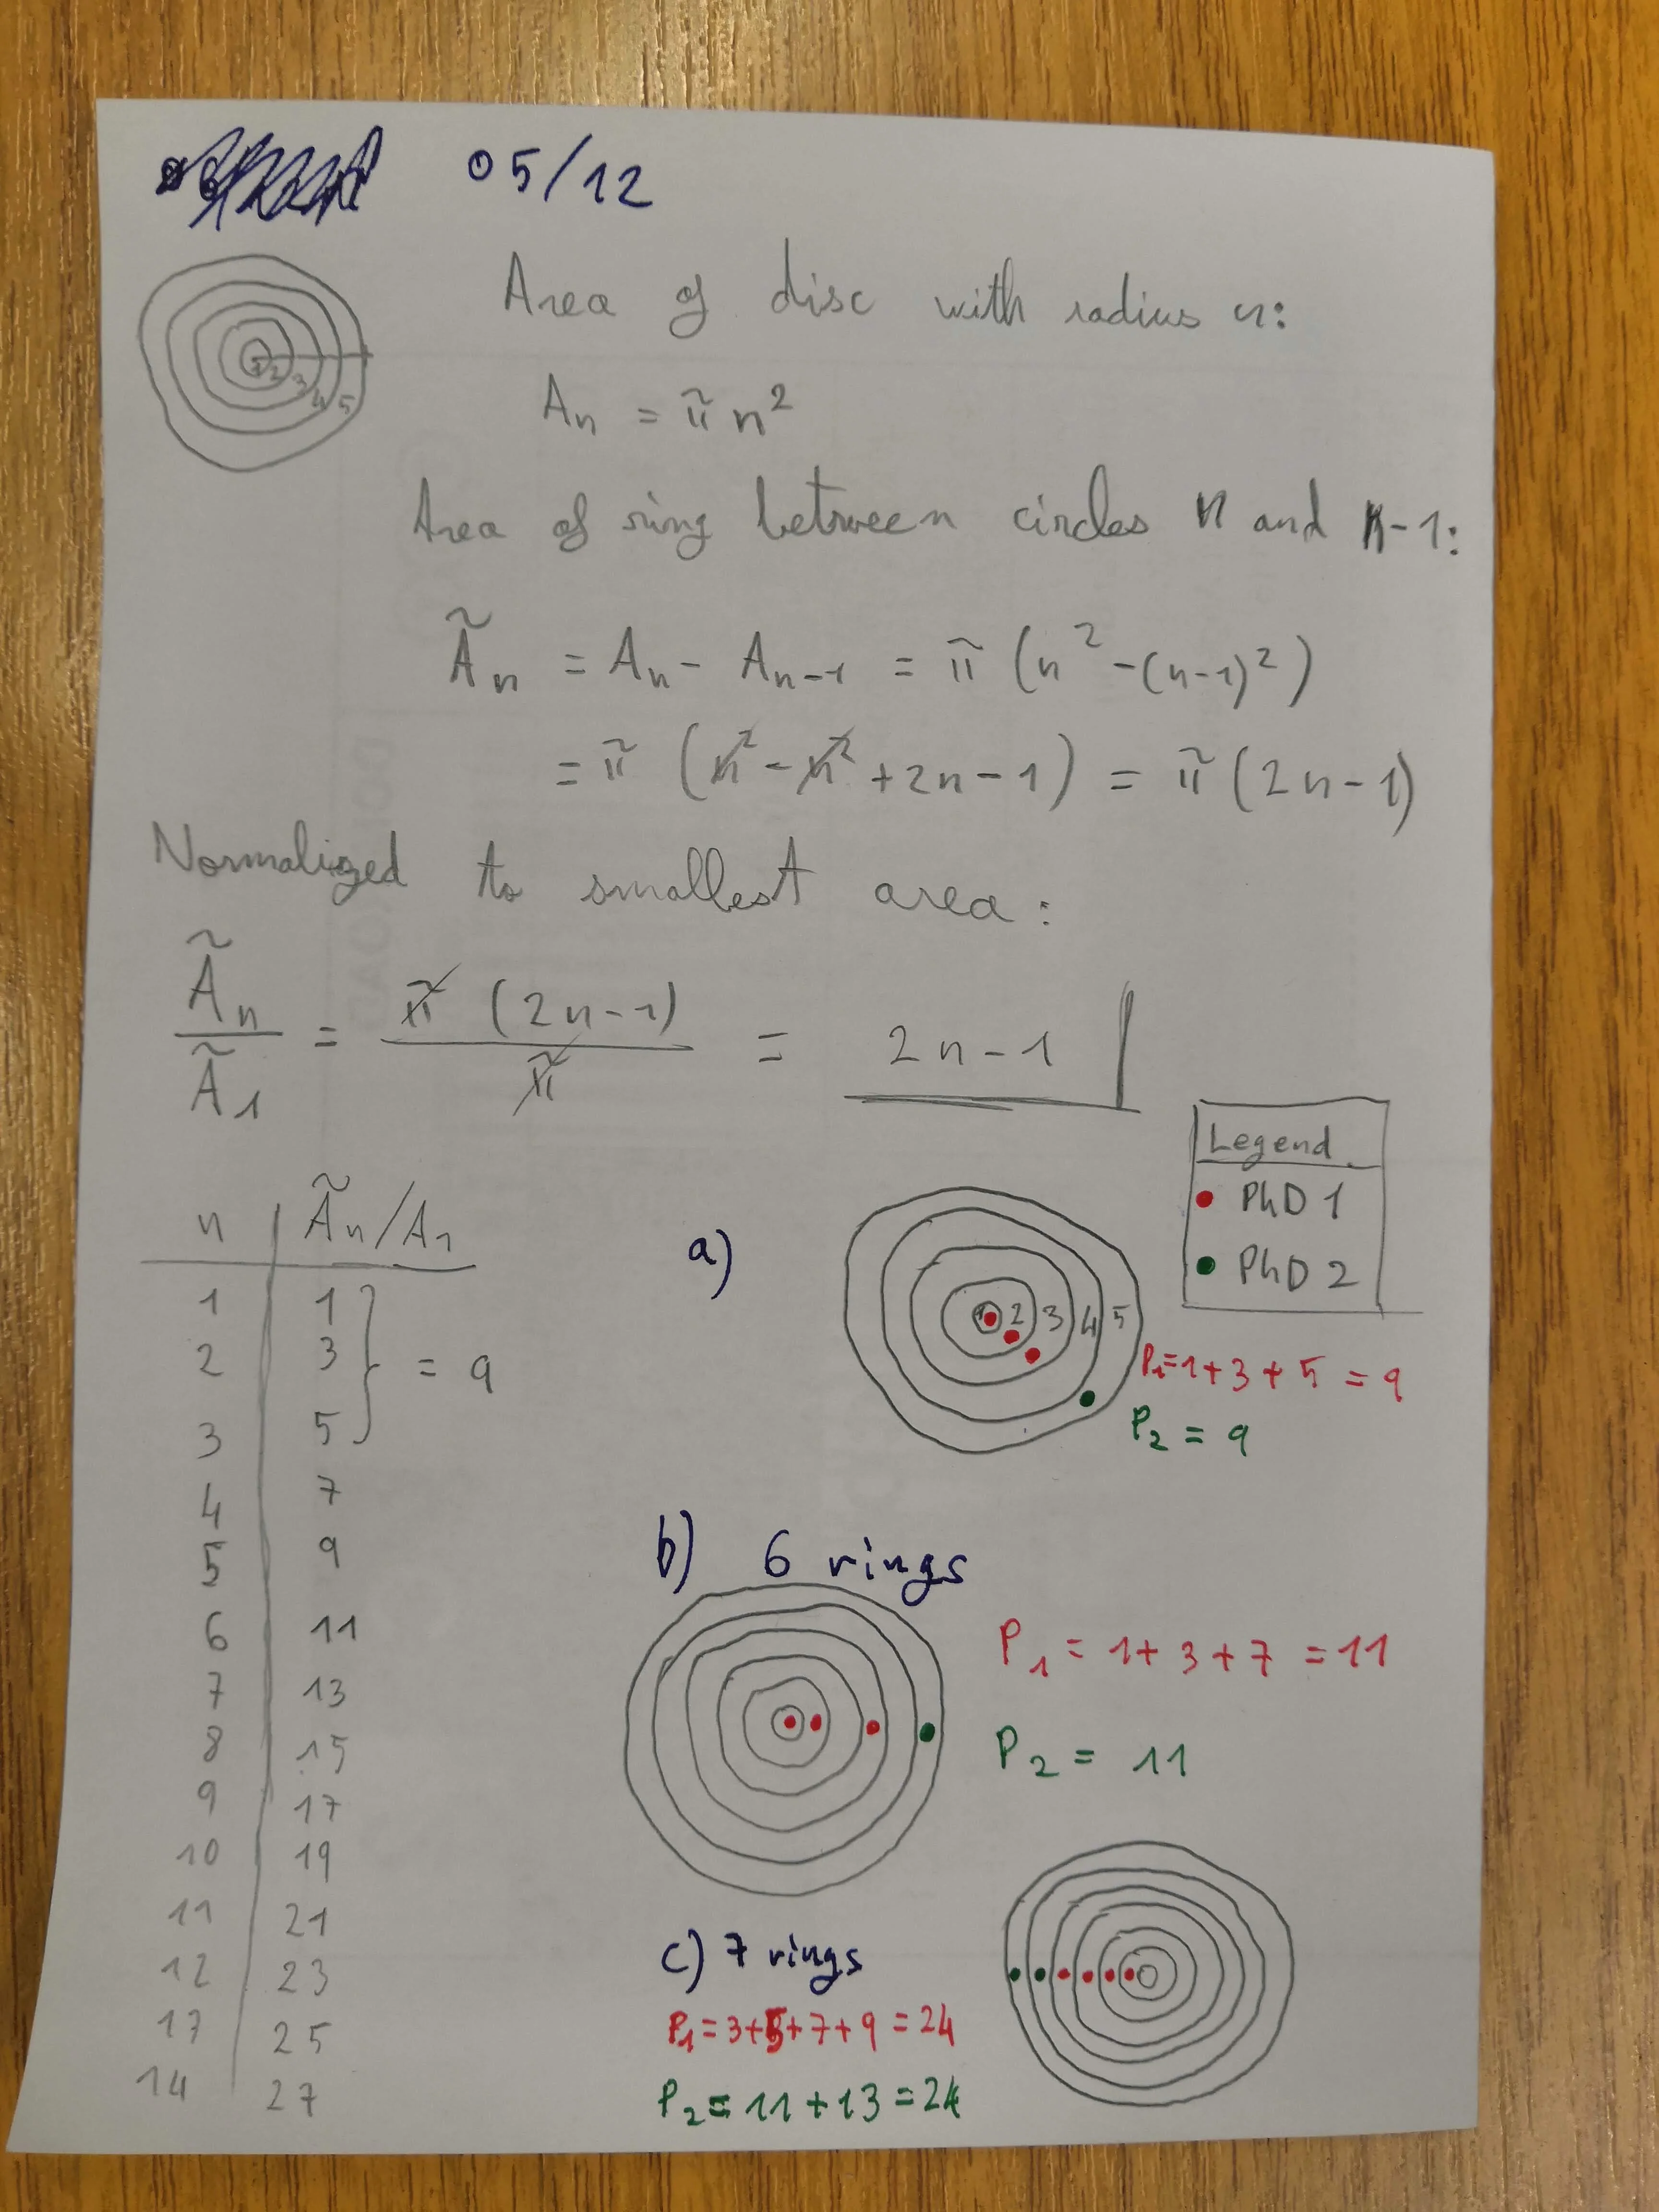 05/12
1 2 3 4 5
Area of disc with radius n:
Aₙ = π n²
Area of ring between circles n and n-1:
Ãₙ = Aₙ - Aₙ₋₁ = π (n² - (n-1)²)
= π (n² - n² + 2n - 1) = π (2n - 1)
Normalized to smallest area:
Ãₙ / Ã₁ = π (2n-1) / π = 2n-1
Legend
PhD 1
PhD 2
n Ãₙ/A₁
1 1
2 3
3 5
= 9
4 7
5 9
6 11
7 13
8 15
9 17
10 19
11 21
12 23
17 25
14 27
a)
1 2 3 4 5
P₁=1+3+5=9
P₂ = 9
b) 6 rings
P₁ = 1+3+7 = 11
P₂ = 11
c) 7 rings
P₁=3+5+7+9=24
P₂=11+13=24